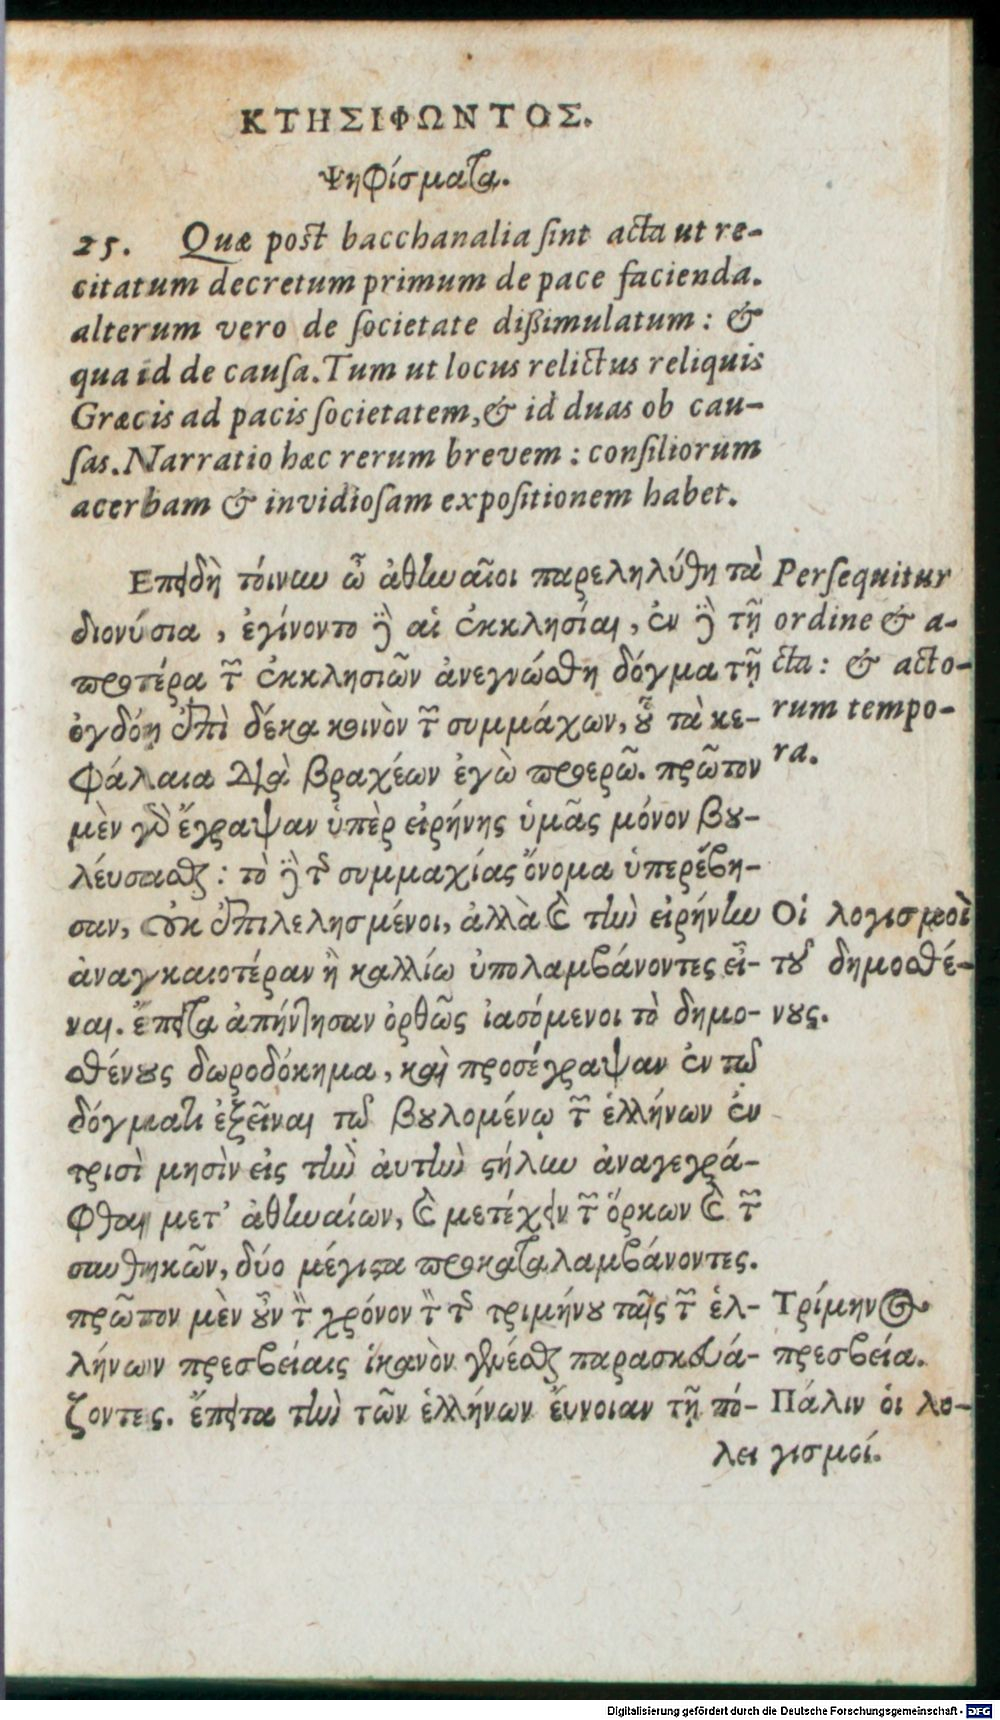 ΚΤΗΣΙΦΩΝΤΟΣ.
Ψηφίσματα.
25. Quæ post bacchanalia sint acta ut re-
citatum decretum primum de pace facienda.
alterum vero de societate dißimulatum: &
qua id de causa. Tum ut locus relictus reliquis
Græcis ad pacis societatem, & id duas ob cau-
sas. Narratio hæc rerum brevem: consiliorum
acerbam & invidiosam expositionem habet.
Επειδὴ τόινυν ὦ ἀθηναῖοι παρεληλύθη τὰ
διονύσια, ἐγίνοντο δὲ αἱ ἐκκλησίαι, ἐν δὲ τῇ
προτέρα τῶν ἐκκλησιῶν ἀνεγνώσθη δόγμα τῇ
ὀγδόη ἐπὶ δέκα κοινὸν τῶν συμμάχων, οὗ τὰ κε-
φάλαια διὰ βραχέων ἐγὼ προερῶ. πρῶτον
μὲν γὰρ ἔγραψαν ὑπὲρ εἰρήνης ὑμᾶς μόνον βου-
λέυσασθαι: τὸ δὲ τῆς συμμαχίας ὄνομα ὑπερέβη-
σαν, οὐκ ἐπιλελησμένοι, ἀλλὰ καὶ τὴν εἰρήνην
ἀναγκαιοτέραν ἢ καλλίω ὑπολαμβάνοντες εἶ-
ναι. ἔπειτα ἀπήντησαν ὀρθῶς ἰασόμενοι τὸ δημο-
σθένους δωροδόκημα, καὶ προσέγραψαν ἐν τῷ
δόγματι ἐξεῖναι τῷ βουλομένῳ τῶν ἑλλήνων ἐν
τρισὶ μησὶν εἰς τὴν ἀυτὴν στήλην ἀναγεγρά-
φθαι μετ' ἀθηναίων, καὶ μετέχειν τῶν ὅρκων καὶ τῶν
συνθηκῶν, δύο μέγιστα προκαταλαμβάνοντες.
πρῶτον μὲν οὖν τὸν χρόνον τὸν τῆς τριμήνου ταῖς τῶν ἑλ-
λήνων πρεσβείαις ἱκανὸν γενέσθαι παρασκευά-
ζοντες. ἔπειτα τὴν τῶν ἑλλήνων ἔυνοιαν τῇ πό-
λει
Persequitur
ordine & a-
cta: & acto-
rum tempo-
ra.
Οἱ λογισμοὶ
τοῦ δημοσθέ-
νους.
Τρίμηνος
πρεσβεία.
Πάλιν οἱ λο-
γισμοί.
Digitalisierung gefördert durch die Deutsche Forschungsgemeinschaft - DFG